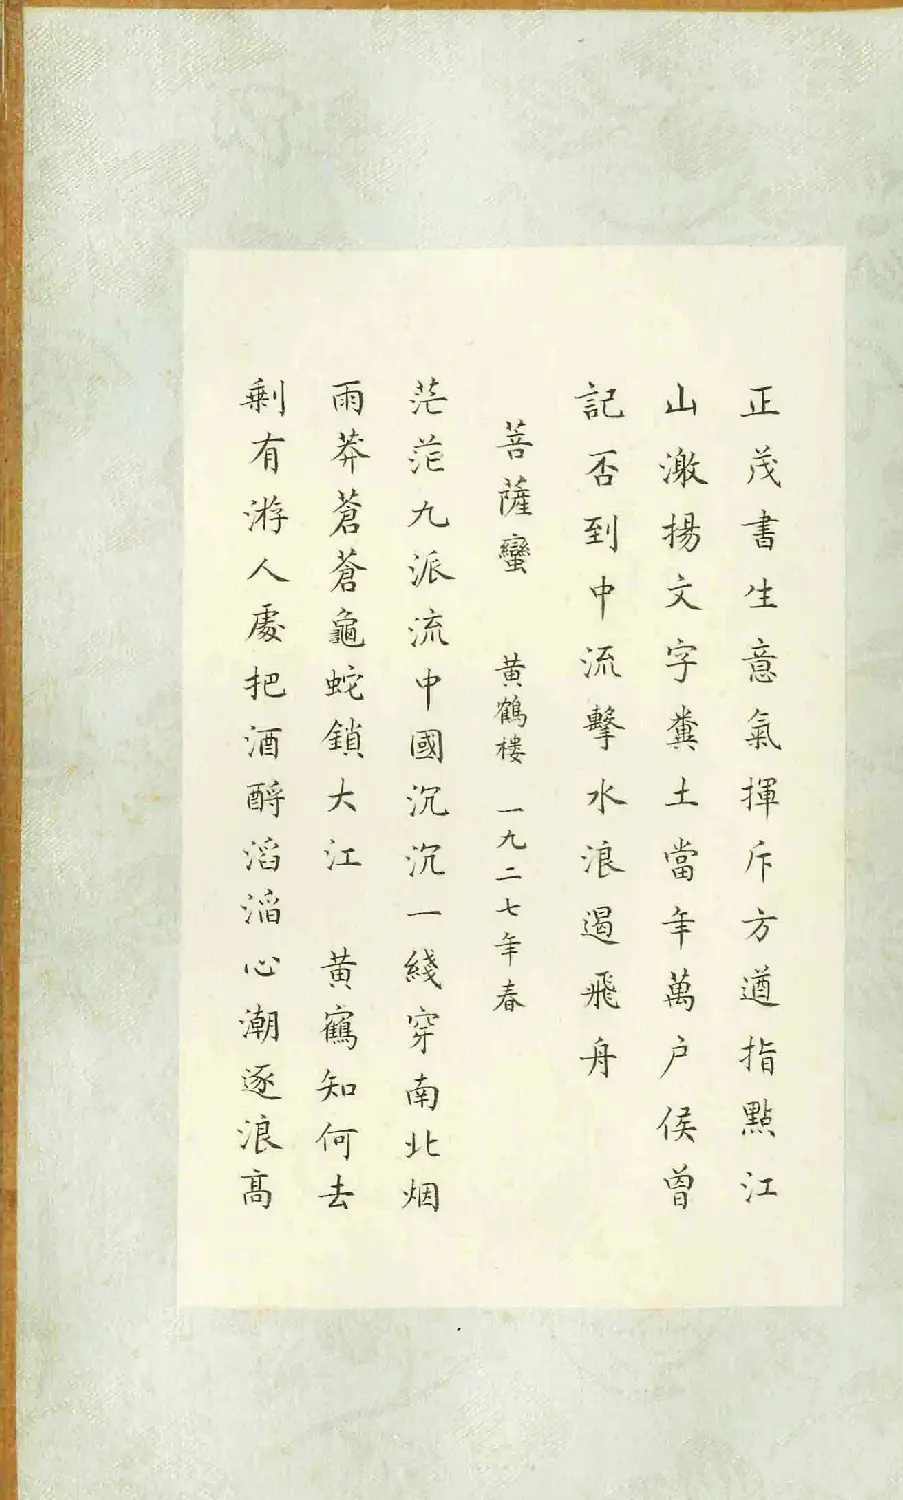 正茂書生意氣揮斥方遒指點江
山激揚文字糞土當年萬户侯曾
記否到中流擊水浪遏飛舟
菩薩蠻 黄鶴樓 一九二七年春
茫茫九派流中國沉沉一綫穿南北烟
雨莽蒼蒼龜蛇鎖大江 黄鶴知何去
剩有游人處把酒酹滔滔心潮逐浪高